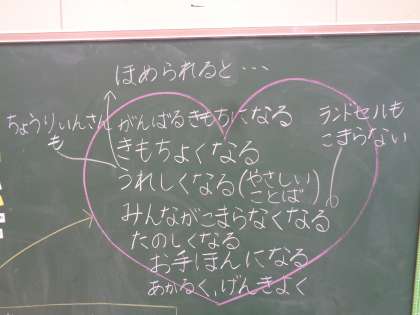 ほめられると…
がんばるきもちになる
きもちよくなる
うれしくなる(やさしいことば)
みんながこまらなくなる
たのしくなる
お手ほんになる
あかるく、げんきよく
ちょうりいんさんも
ランドセルも
こまらない